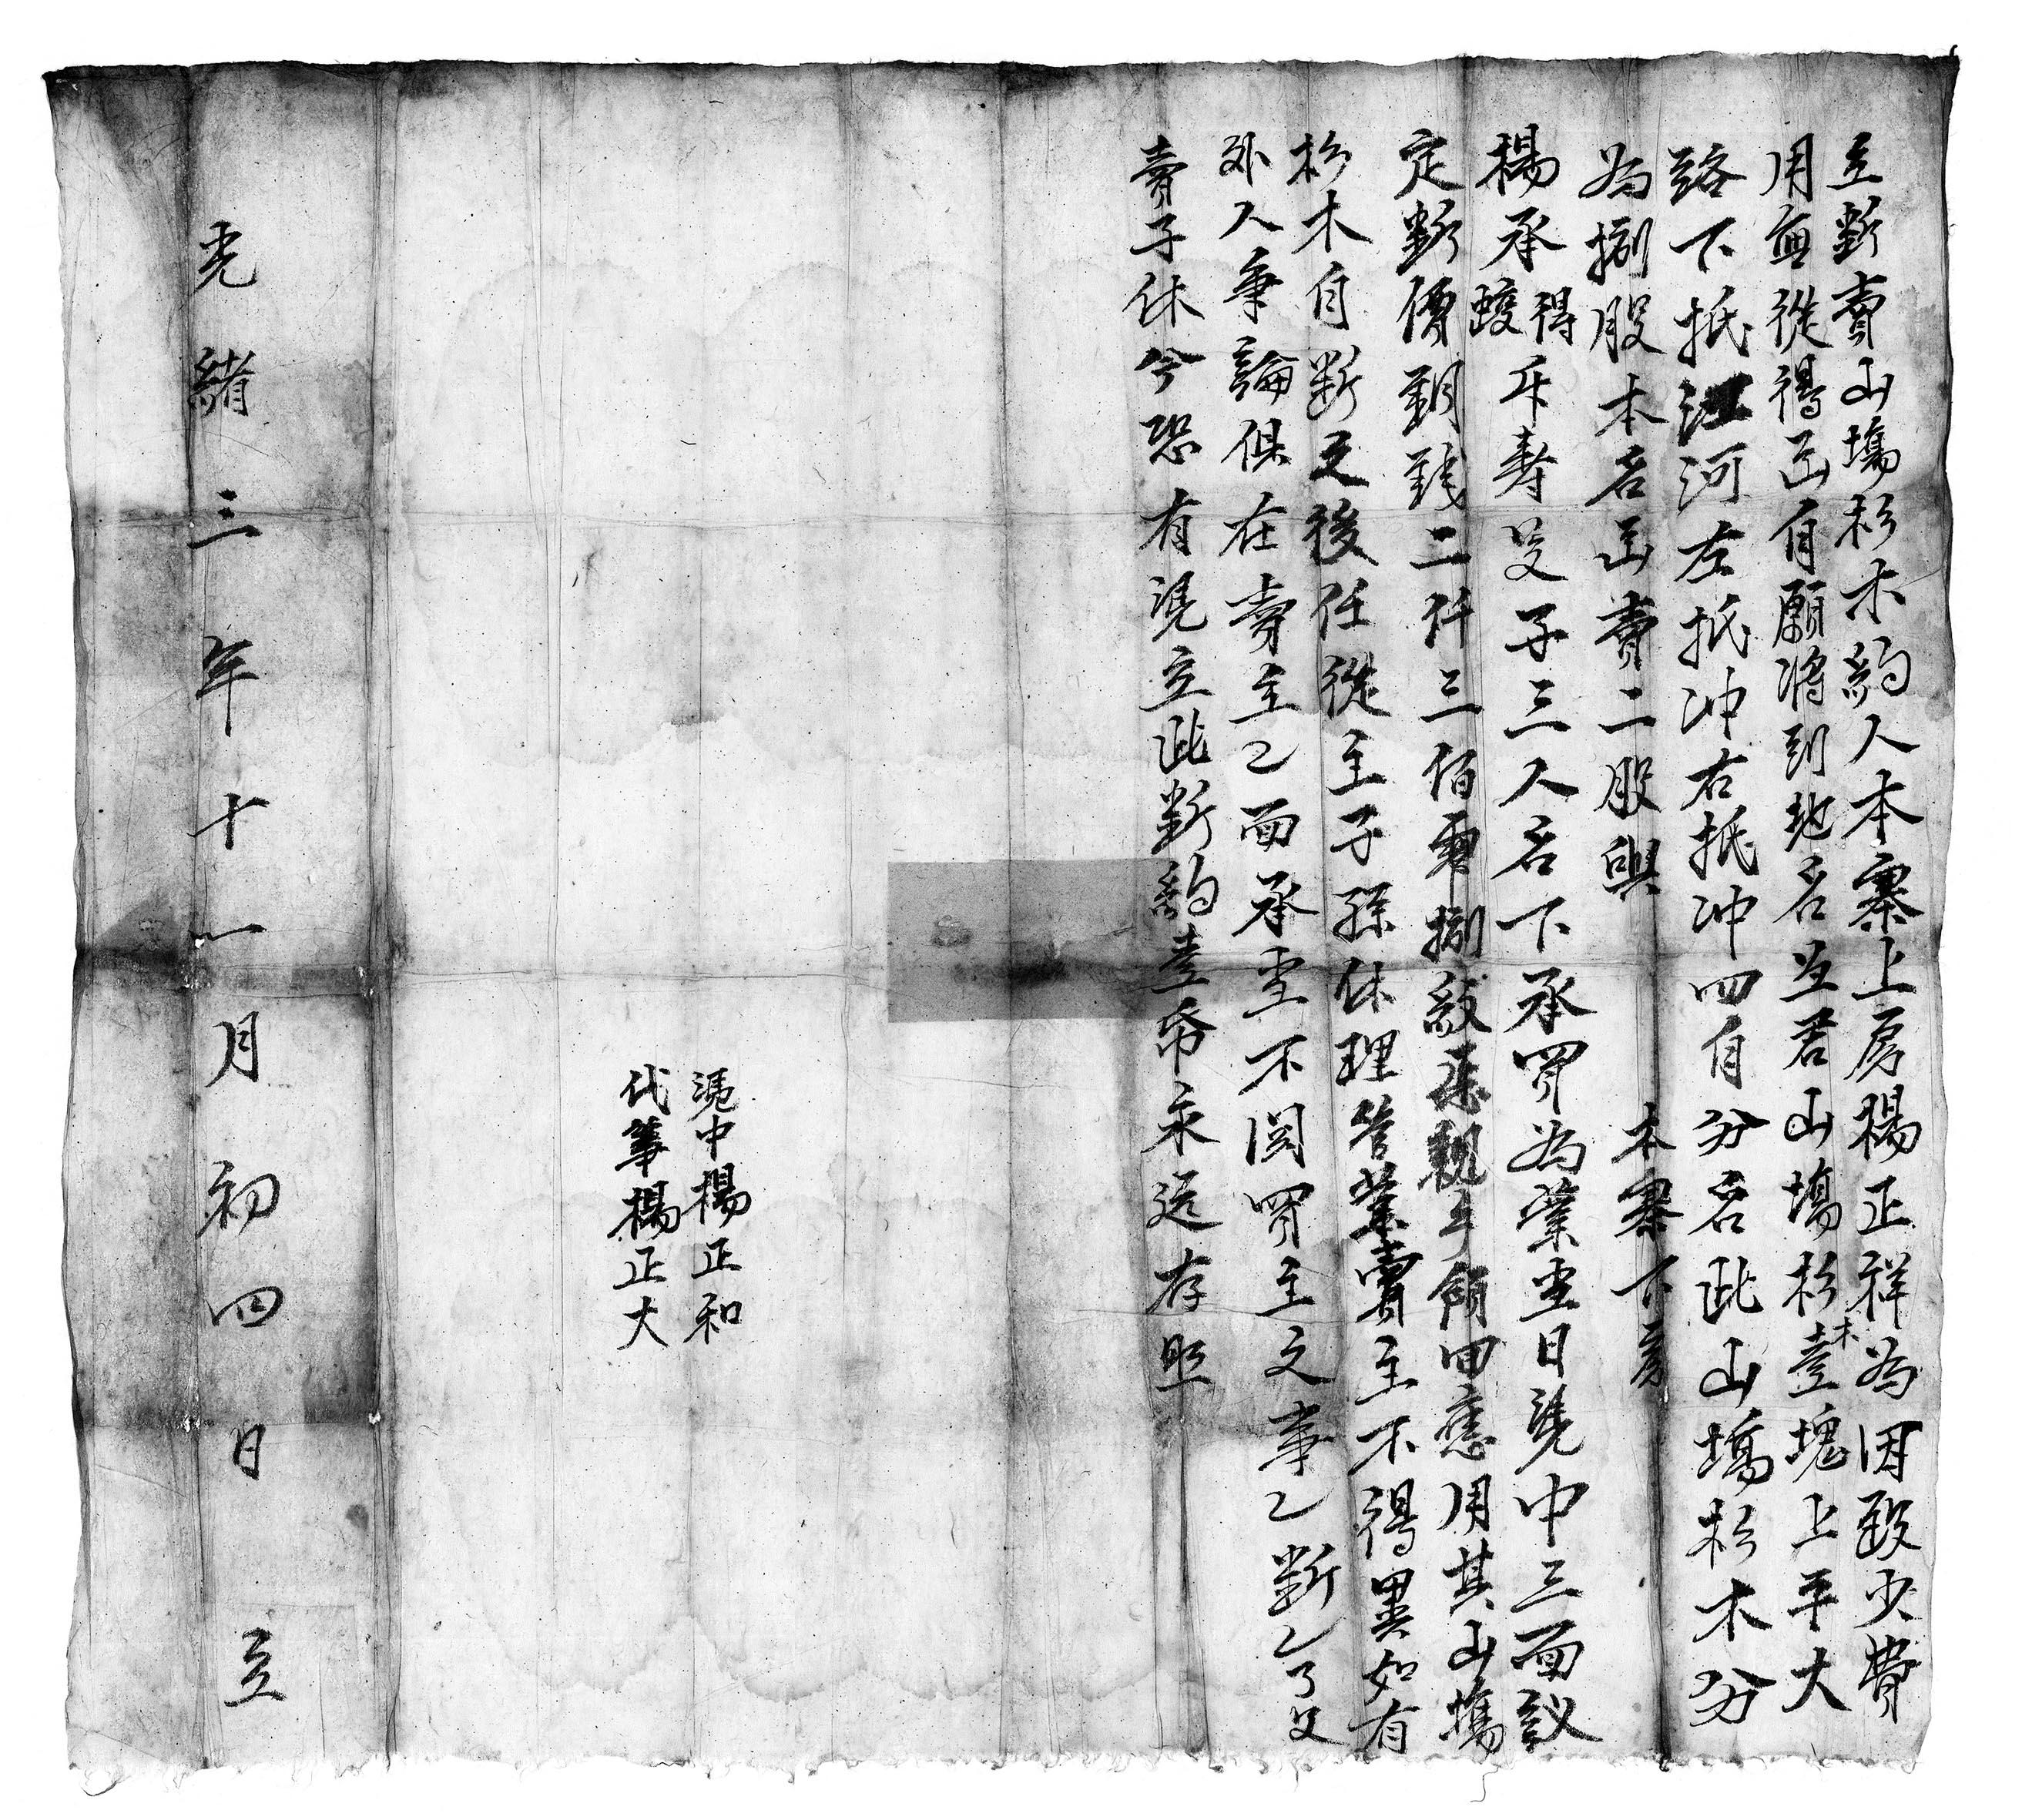 立斷賣山塲杉木約人本寨上房楊正祥為因致少費
用無從得出自願將到地名立君山塲杉木壹塊上平大
路下抵江河左抵冲右抵冲四自分名此山塲杉木分
為捌股本名出賣二股與 本寨下房
楊承蛟得年壽父子三人名下承買為業當日凴中三面議
定斷價銅錢二仟三佰零捌文親手領回應用其山塲
杉木自斷之後任從主子孫休理管業賣主不得異如有
外人爭論俱在賣主乙面承當不関買主之事乙斷乙了父
賣子休今恐有凴立此斷約壹帋永遠存照
凴中楊正和
代筆楊正大
光緒三年十一月初四日立